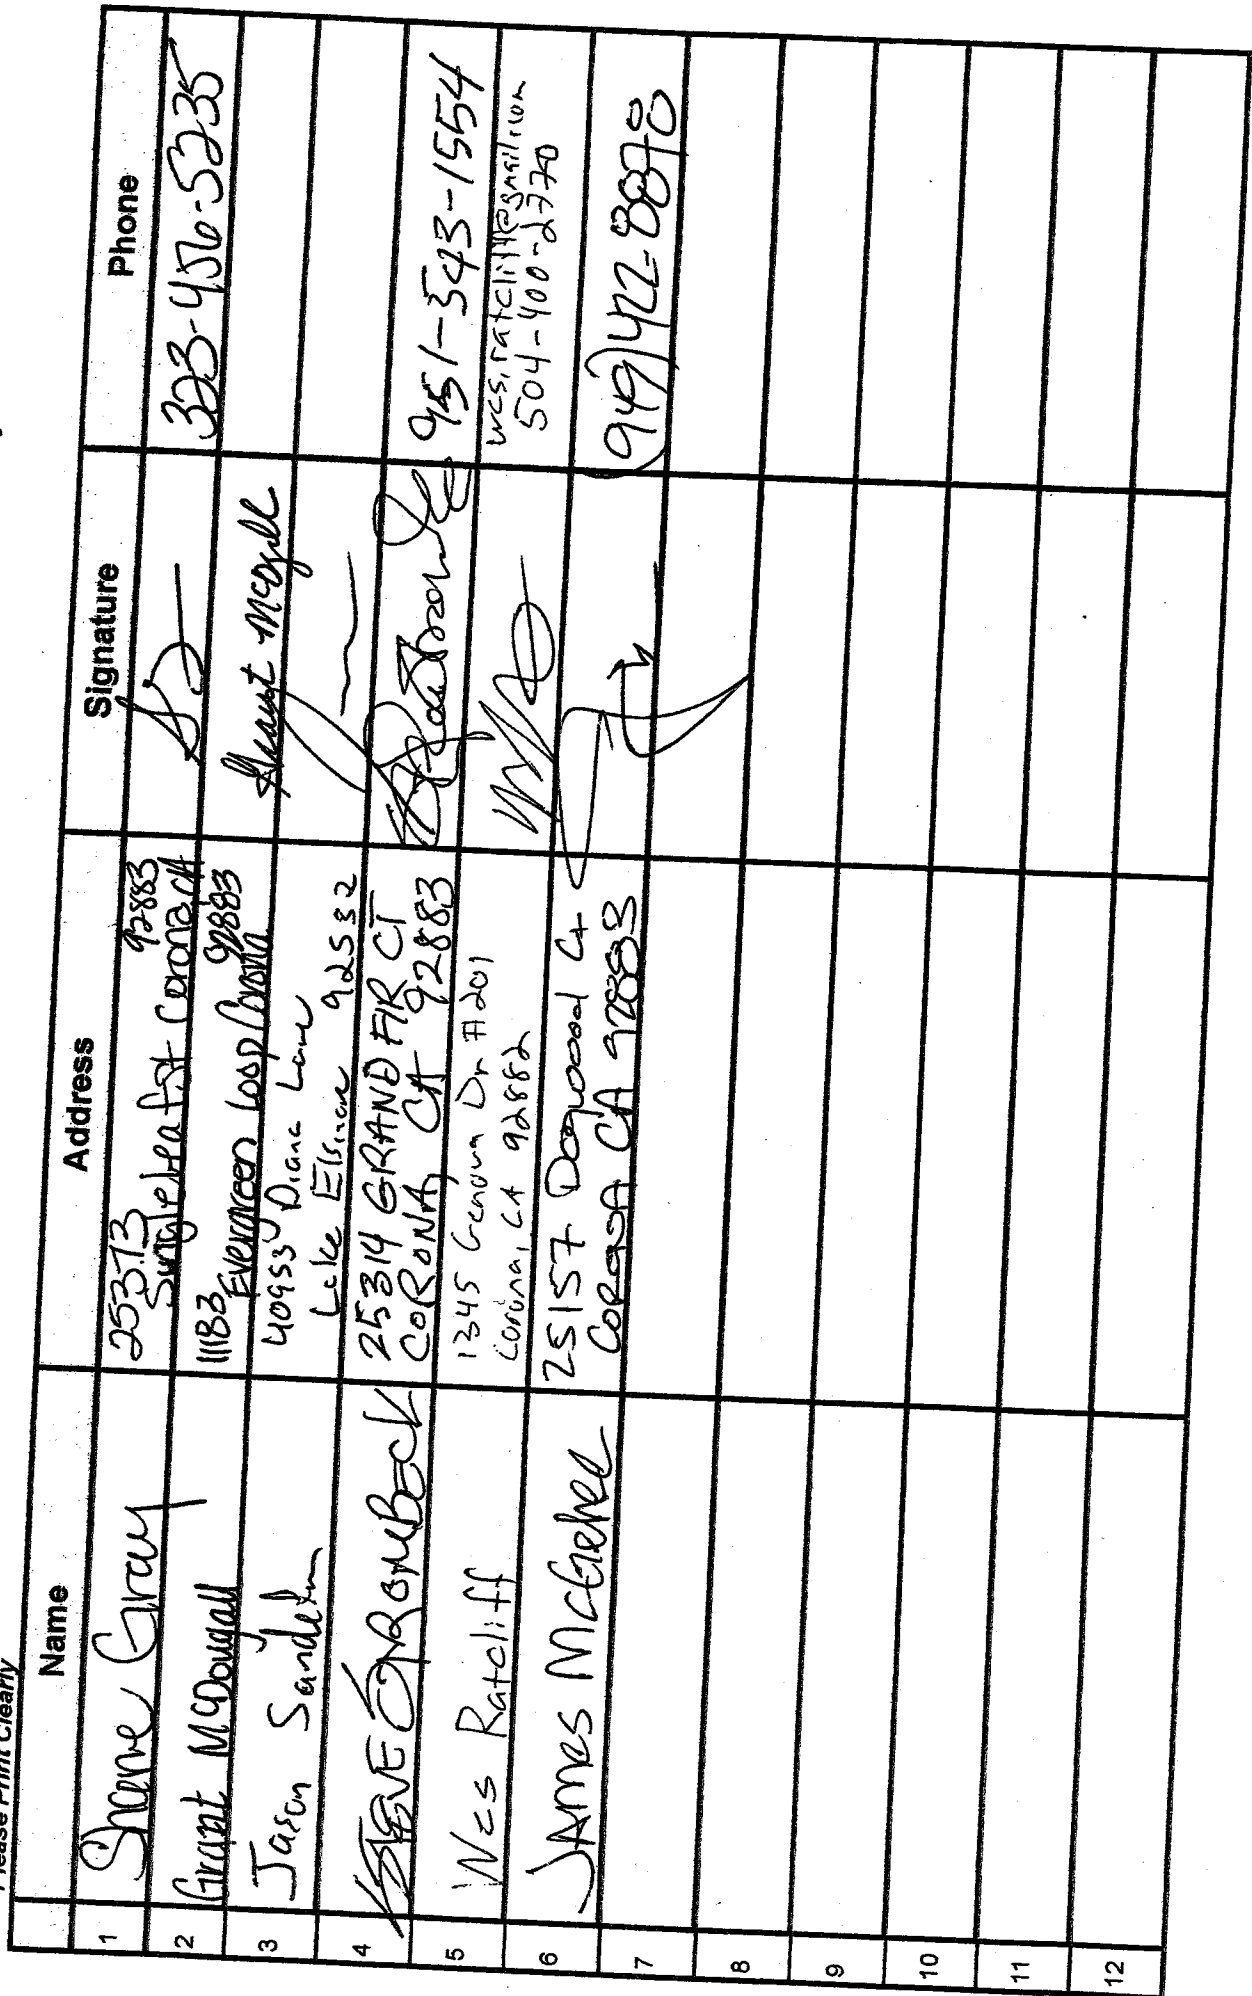 Please Print Clearly
Name Address Signature Phone
1 Shane Gray 25373 92883
Singleleaf St Corona, CA 323-456-5235
2 Grant McDougall 11183 Evergreen Loop Corona 92883 Grant McDgall
3 Jason 40953 Diana Lane
Lake Elsinore 92532
4 STEVE BROMBECK 25314 GRAND FIR CT
CORONA, CA 92883 951-543-1554
5 Wes Ratcliff 1345 Dr # 201
Corona, CA 92882 wes.ratcliff@gmail.com
504-400-2770
6 JAMES McGehee 25157 Dogwood Ct
CORONA CA 92883 (949) 422-8890
7
8
9
10
11
12